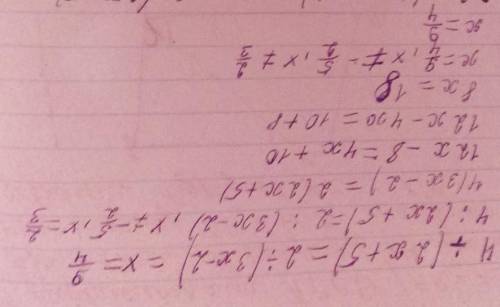 4 ÷ (2x+5) = 2 ÷ (3x-2) = x = 9/4
4 ÷ (2x+5) = 2 ÷ (3x-2) , x ≠ -5/2 , x ≠ 2/3
4(3x-2) = 2(2x+5)
12x - 8 = 4x + 10
12x - 4x = 10 + 8
8x = 18
x = 9/4 , x ≠ - 5/2 , x ≠ 2/3
x = 9/4